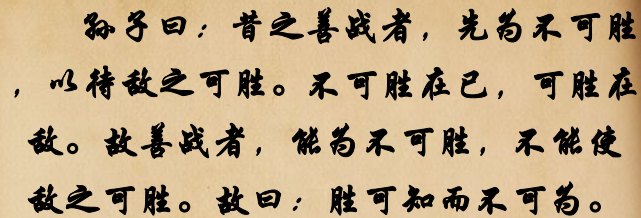 孙子曰：昔之善战者，先为不可胜
，以待敌之可胜。不可胜在己，可胜在
敌。故善战者，能为不可胜，不能使
敌之可胜。故曰：胜可知而不可为。